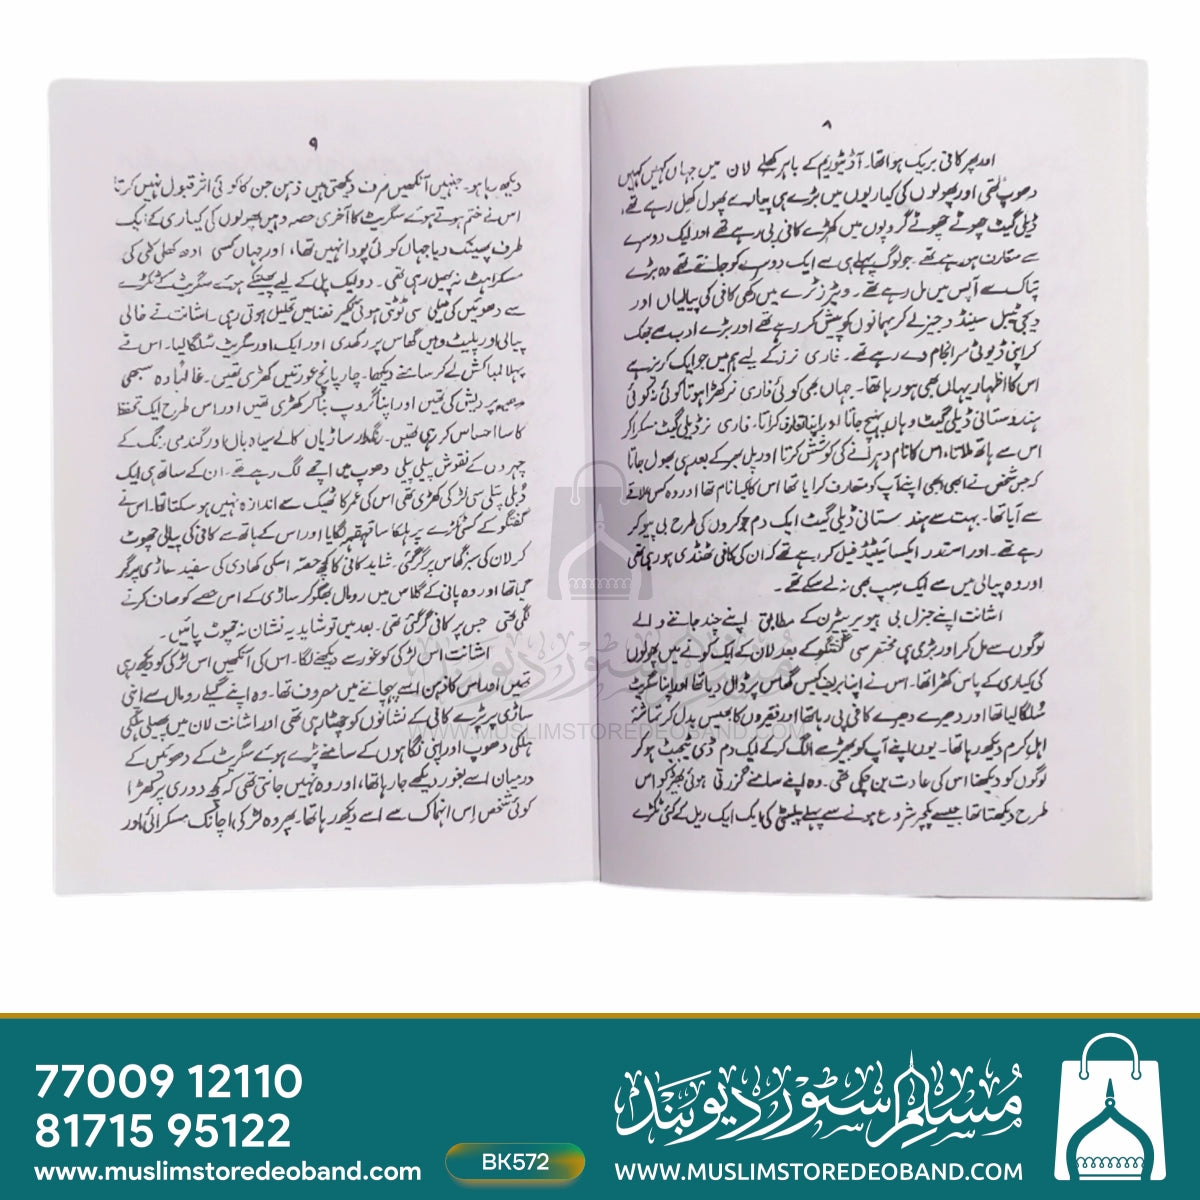 ۸
اور پھر کافی بریک ہوا تھا۔ آڈیٹوریم کے باہر کھلے لان میں جہاں کہیں کہیں
دھوپ تھی اور پھولوں کی کیاریوں میں بڑے ہی پیارے پھول کھل رہے تھے،
ڈیلی گیٹ چھوٹے چھوٹے گروپوں میں کھڑے کافی پی رہے تھے اور ایک دوسرے
سے متعارف ہو رہے تھے۔ جو لوگ پہلے ہی سے ایک دوسرے کو جانتے تھے وہ بڑے
تپاک سے آپس میں مل رہے تھے۔ ویٹرز ٹرے میں رکھی کافی کی پیالیاں اور
ویجی ٹیبل سینڈوچیز لے کر مہمانوں کو پیش کر رہے تھے اور بڑے ادب سے جھک
کر اپنی ڈیوٹی سرانجام دے رہے تھے۔ فاری نرز کے لیے ہم میں جو ایک کریز ہے
اس کا اظہار یہاں بھی ہو رہا تھا۔ جہاں بھی کوئی فاری نر کھڑا ہوتا کوئی نہ کوئی
ہندوستانی ڈیلی گیٹ وہاں پہنچ جاتا اور اپنا تعارف کراتا۔ فاری نر ڈیلی گیٹ مسکرا کر
اس سے ہاتھ ملاتا، اس کا نام دہرانے کی کوشش کرتا اور پل بھر کے بعد ہی بھول جاتا
کہ جس شخص نے ابھی ابھی اپنے آپ کو متعارف کرایا تھا اس کا کیا نام تھا اور وہ کس علاقے
سے آیا تھا۔ بہت سے ہندوستانی ڈیلی گیٹ ایک دم چھوکروں کی طرح بی ہیو کر
رہے تھے۔ اور اس قدر ایکسائیٹیڈ فیل کر رہے تھے کہ ان کی کافی ٹھنڈی ہو رہی تھی
اور وہ پیالی میں سے ایک سپ بھی نہ لے سکے تھے۔
اشانت اپنے جنرل بی ہیویر پیٹرن کے مطابق اپنے چند جاننے والے
لوگوں سے مل کر اور بڑی ہی مختصر سی گفتگو کے بعد لان کے ایک کونے میں پھولوں
کی کیاری کے پاس کھڑا تھا۔ اس نے اپنا بریف کیس گھاس پر ڈال دیا تھا اور اپنا سگریٹ
سُلگا لیا تھا اور دھیرے دھیرے کافی پی رہا تھا اور فقیروں کا بھیس بدل کر تماشائے
اہلِ کرم دیکھ رہا تھا۔ یوں اپنے آپ کو بھیڑ سے الگ کر کے ایک دم ڈی ٹیچیٹ ہو کر
لوگوں کو دیکھنا اس کی عادت بن چکی تھی۔ وہ اپنے سامنے گزرتی ہوئی بھیڑ کو اس
طرح دیکھتا تھا جیسے پکچر شروع ہونے سے پہلے پبلسٹی کی ایک ایک ریل کے کئی ٹکڑے
۹
دیکھ رہا ہو۔ جنہیں آنکھیں صرف دیکھتی ہیں ذہن جن کا کوئی اثر قبول نہیں کرتا
اس نے ختم ہوتے ہوئے سگریٹ کا آخری حصہ وہیں پھولوں کی کیاری کے ایک
طرف پھینک دیا جہاں کوئی پودا نہیں تھا، اور جہاں کسی ادھ کھلی کلی کی
مسکراہٹ نہ پھیل رہی تھی۔ دو ایک پل کے لیے پھینکے ہوئے سگریٹ کے ٹکڑے
سے دھوئیں کی میلی سی ٹوٹتی ہوئی لکیر فضا میں تحلیل ہوتی رہی۔ اشانت نے خالی
پیالی اور پلیٹ وہیں گھاس پر رکھ دی اور ایک اور سگریٹ سُلگا لیا۔ اس نے
پہلا لمبا کش لے کر سامنے دیکھا۔ چار پانچ عورتیں کھڑی تھیں۔ غالباً وہ سبھی
مدھیہ پردیش کی تھیں اور اپنا گروپ بنا کر کھڑی تھیں اور اس طرح ایک تحفظ
کا سا احساس کر رہی تھیں۔ رنگدار ساڑیاں کالے سیاہ بال اور گندمی رنگ کے
چہروں کے نقوش پیلی پیلی دھوپ میں اچھے لگ رہے تھے۔ ان کے ساتھ ہی ایک
دُبلی پتلی سی لڑکی کھڑی تھی اس کی عمر کا ٹھیک سے اندازہ نہیں ہو سکتا تھا۔ اس نے
گفتگو کے کسی ٹکڑے پر ہلکا سا قہقہہ لگایا اور اس کے ہاتھ سے کافی کی پیالی چھوٹ
کر لان کی سبز گھاس پر گر گئی۔ شاید کافی کا کچھ حصہ اسکی کھادی کی سفید ساڑی پر گر
گیا تھا اور وہ پانی کے گلاس میں رومال بھگو کر ساڑی کے اس حصے کو صاف کرنے
لگی تھی جس پر کافی گر گئی تھی۔ بعد میں تو شاید یہ نشان نہ چھوٹ پائیں۔
اشانت اس لڑکی کو غور سے دیکھنے لگا۔ اس کی آنکھیں اس لڑکی کو دیکھ رہی
تھیں اور اس کا ذہن اسے پہچاننے میں مصروف تھا۔ وہ اپنے گیلے رومال سے اپنی
ساڑی پر پڑے کافی کے نشانوں کو چھٹا رہی تھی اور اشانت لان میں پھیلی ہلکی
ہلکی دھوپ اور اپنی نگاہوں کے سامنے پڑے ہوئے سگریٹ کے دھوئیں کے
درمیان اسے بغور دیکھے جا رہا تھا، اور وہ نہیں جانتی تھی کہ کچھ دوری پر کھڑا
کوئی شخص اس انہماک سے اسے دیکھ رہا تھا۔ پھر وہ لڑکی اچانک مسکرائی اور
مسلم سٹور دیوبند
WWW.MUSLIMSTOREDEOBAND.COM
77009 12110
81715 95122
www.muslimstoredeoband.com
BK572
مسلم سٹور دیوبند
WWW.MUSLIMSTOREDEOBAND.COM